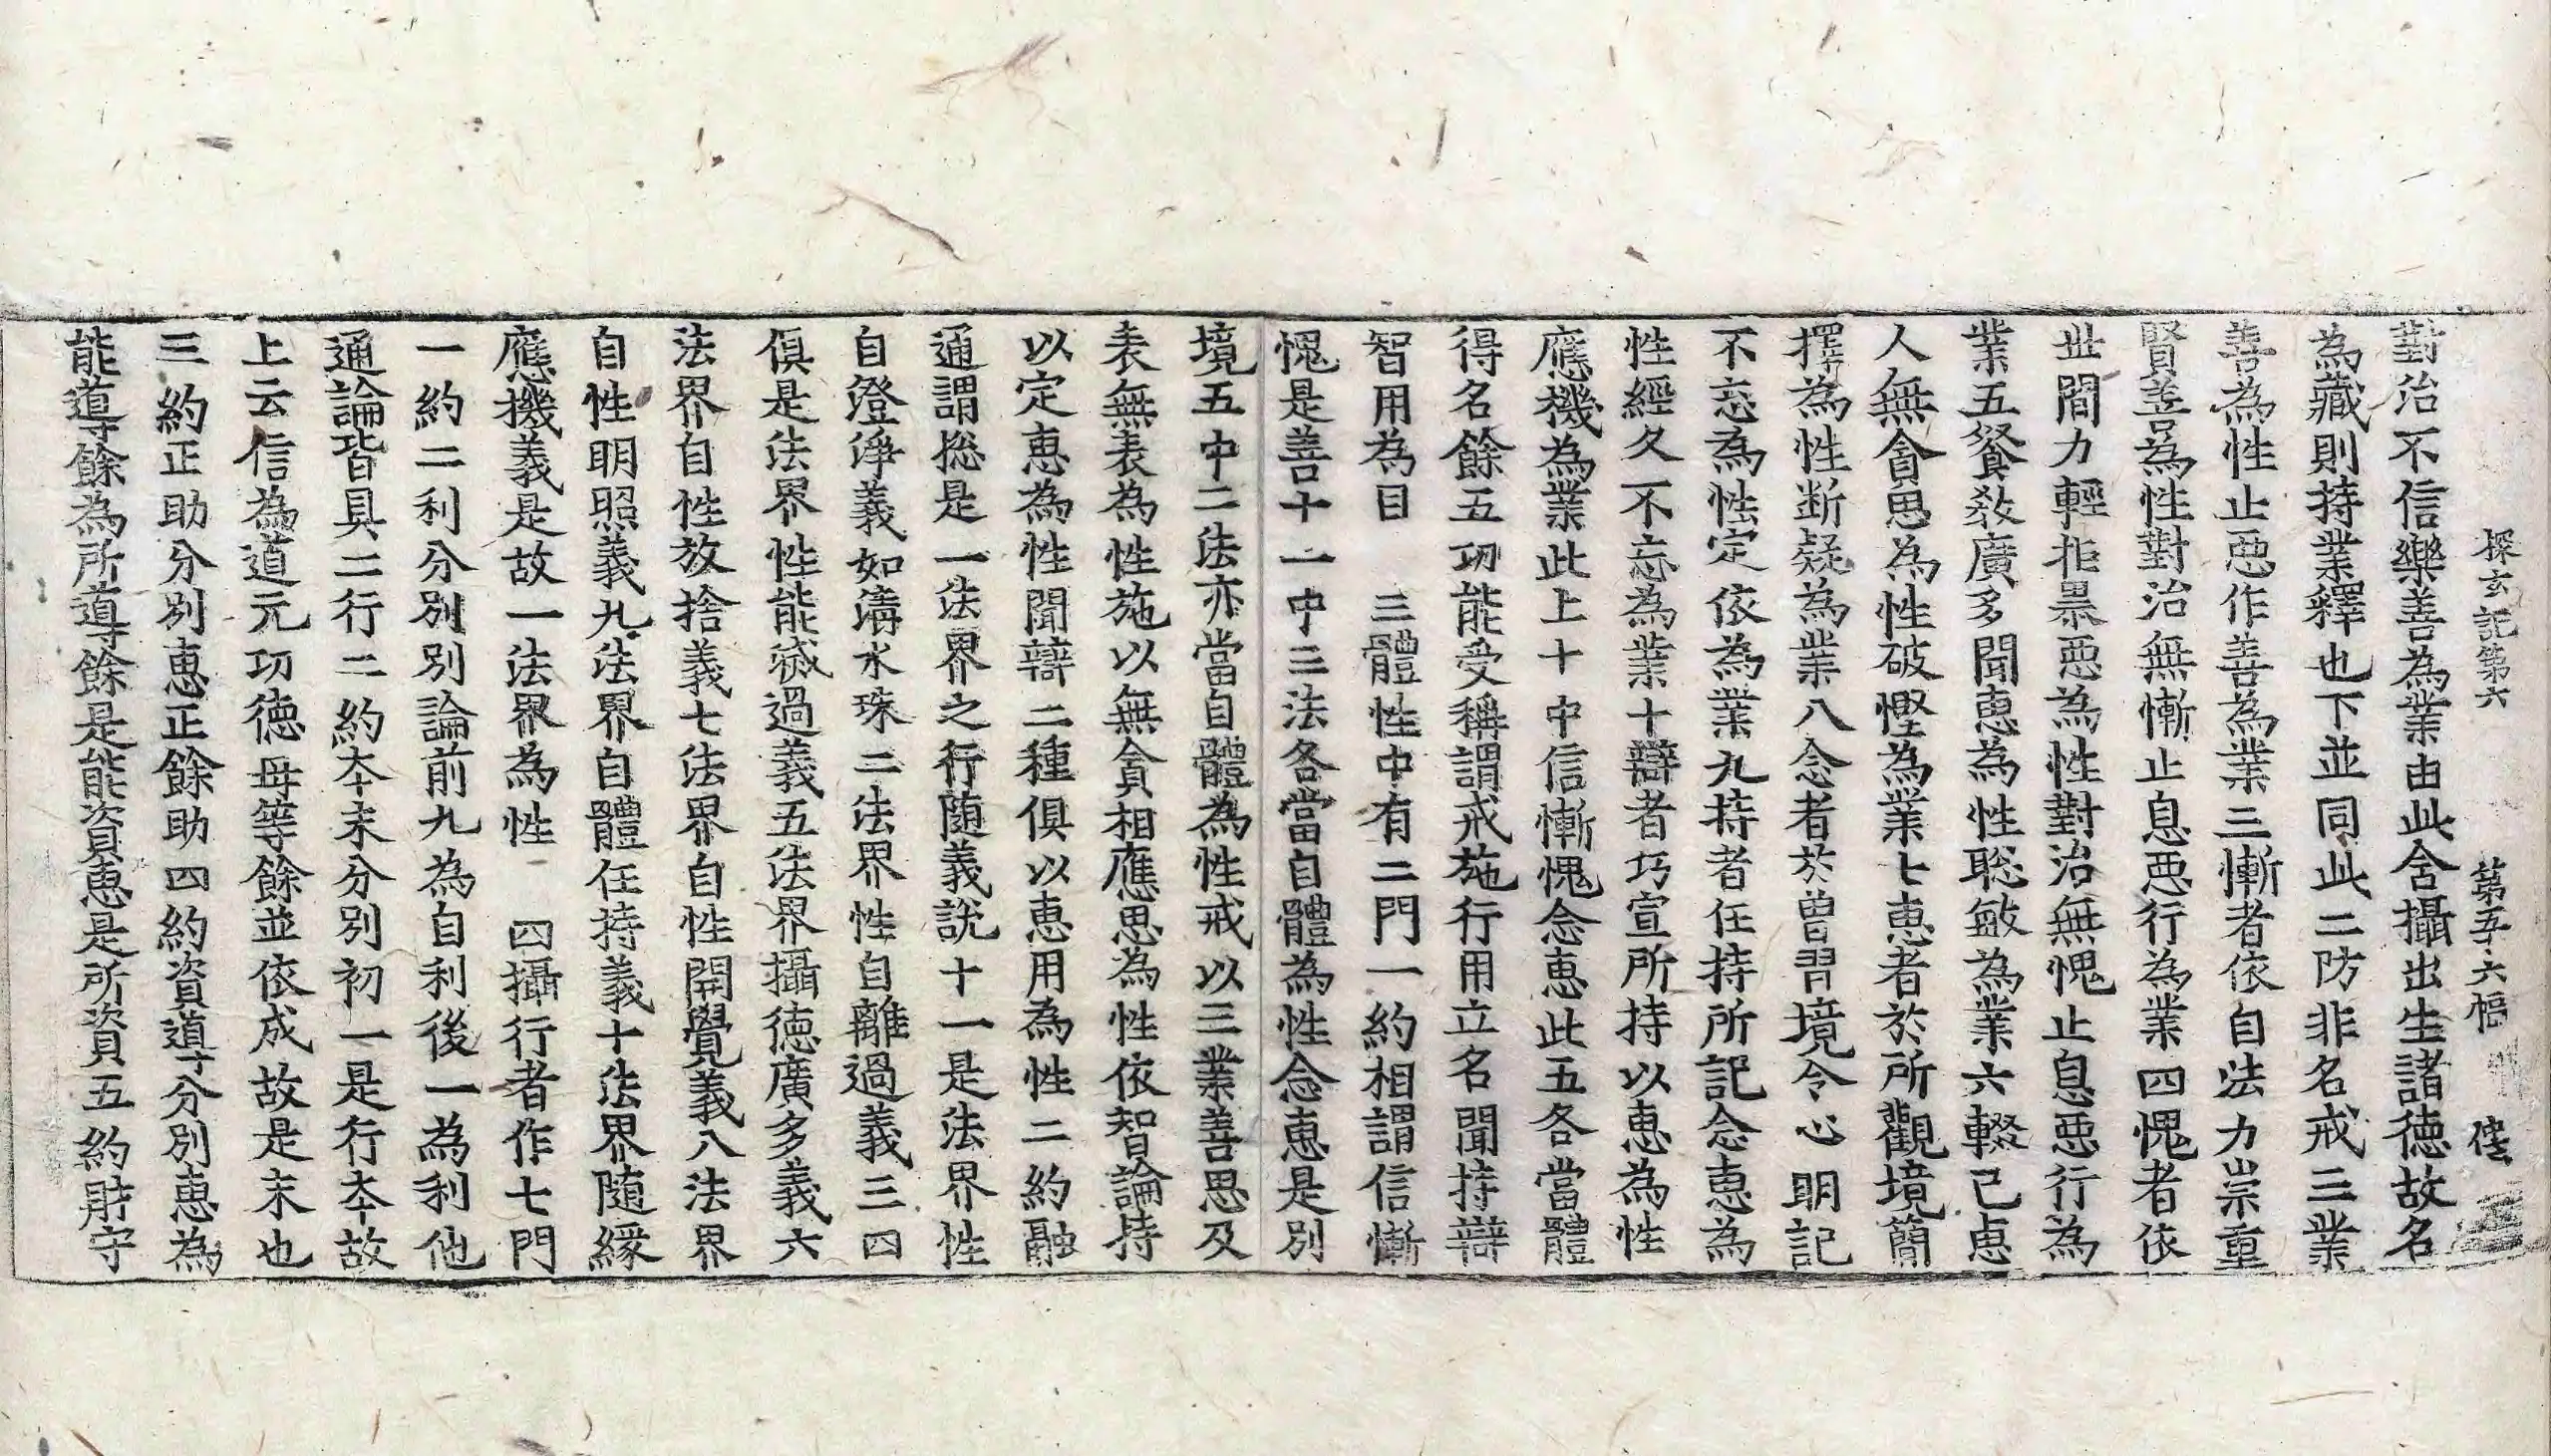 探玄記第六　第五十六幅
對治不信樂善為業由此含攝出生諸德故名
為藏則持業釋也下並同此二防非名戒三業
善為性止惡作善為業三慚者依自法力崇重
賢善為性對治無慚止息惡行為業四愧者依
世間力輕拒暴惡為性對治無愧止息惡行為
業五飡教廣多聞惠為性聡敏為業六輟己惠
人無貪思為性破慳為業七惠者於所觀境簡
擇為性断疑為業八念者於曽習境令心明記
不忘為性定依為業九持者任持所記念惠為
性經久不忘為業十辯者巧宣所持以惠為性
應機為業此上十中信慚愧念惠此五各當體
得名餘五功能受稱謂戒施行用立名聞持辯
智用為目　三體性中有二門一約相謂信慚
愧是善十一中三法各當自體為性念惠是別
境五中二法亦當自體為性戒以三業善思及
表無表為性施以無貪相應思為性依智論持
以定惠為性聞辯二種俱以惠用為性二約融
通謂捴是一法界之行随義說十一是法界性
自澄淨義如清水珠二法界性自離過義三四
俱是法界性能滅過義五法界攝德廣多義六
法界自性放捨義七法界自性開覺義八法界
自性明照義九法界自體任持義十法界随緣
應機義是故一法界為性　四攝行者作七門
一約二利分別別論前九為自利後一為利他
通論皆具二行二約本末分別初一是行本故
上云信為道元功德母等餘並依成故是末也
三約正助分別惠正餘助四約資導分別惠為
能導餘為所導餘是能資惠是所資五約財守